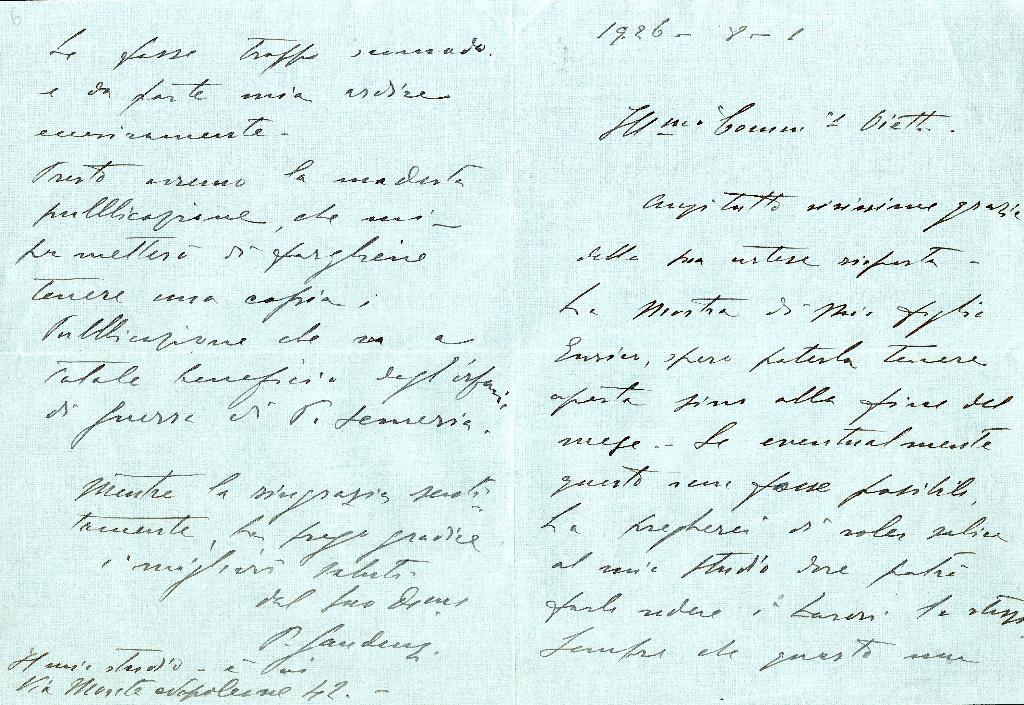 1926 - 8 - 1
Ill mo Comm re Viett.
Anzi tutto vivissime grazie
della sua cortese risposta -
La Mostra di mio figlio
Enrico, spero poterla tenere
aperta sino alla fine del
mese. - Se eventualmente
questo non fosse possibile,
La pregherei di voler salire
al mio studio dove potrò
farle vedere i lavori lo stesso
Sempre che questo non
Le fosse troppo incomodo
e da parte mia ardire
Presto avremo la modesta
pubblicazione, che mi
permetterò di fargliene
tenere una copia;
Pubblicazione che va a
totale beneficio degl'orfani
di guerra di P. Semeria.
Mentre la ringrazio senti-
tamente, La prego gradire
i migliori saluti
dal suo Devmo
Il mio studio - è qui
Via Monte Napoleone 42. -